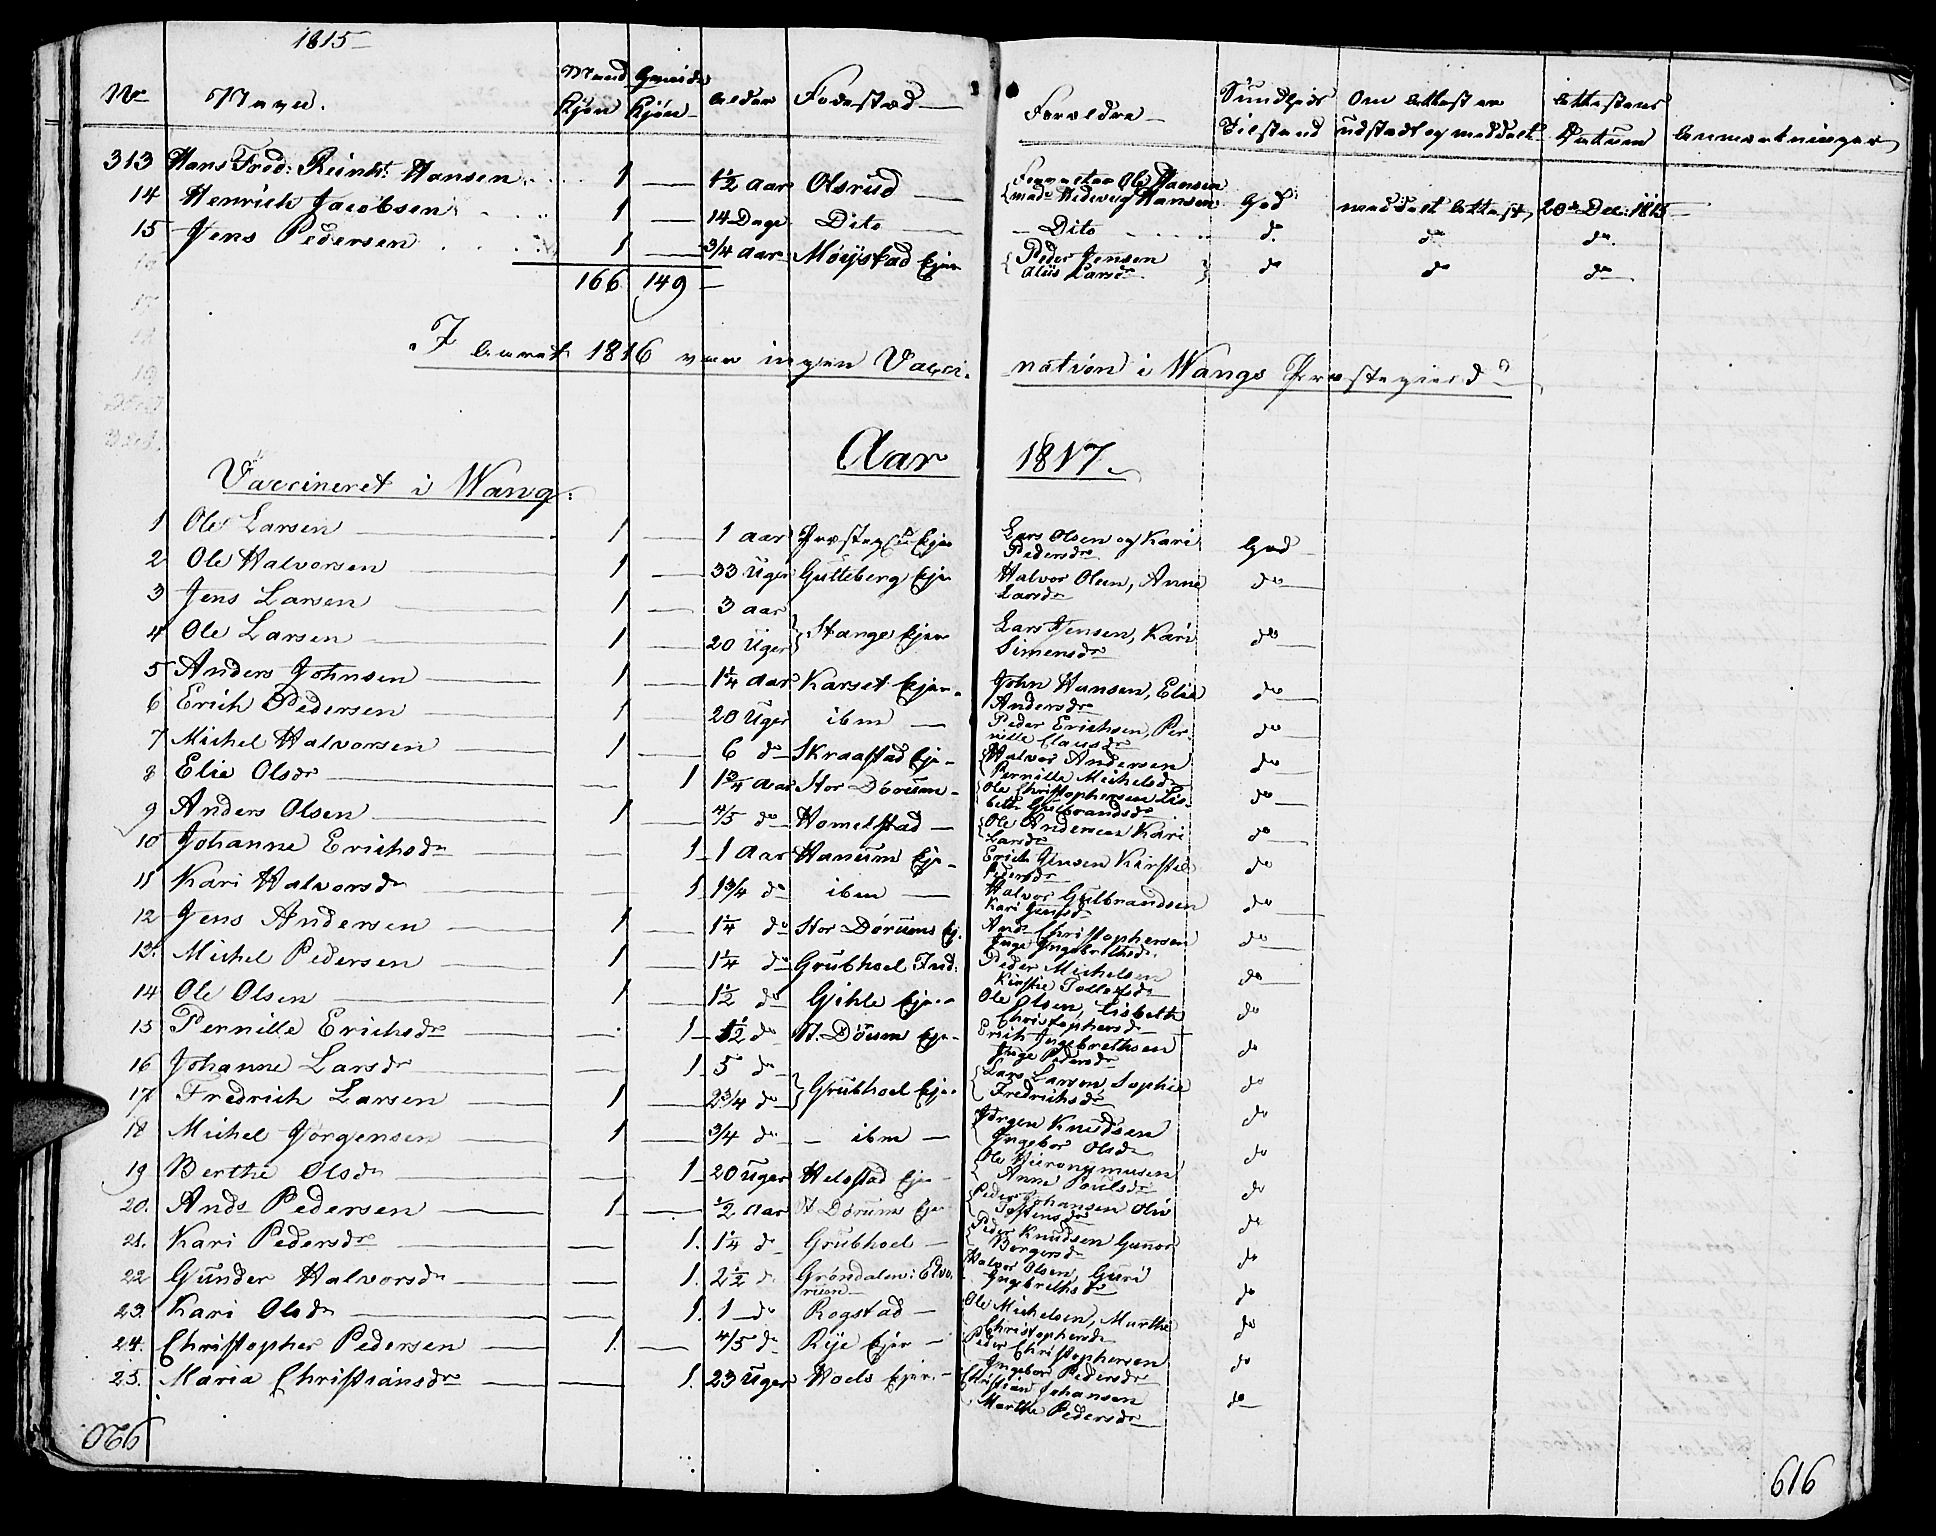 1815
No Navn. Mand Kjøn Qvinde Kjøn Alder Fødestæd Forældre Sundheds Tilstand Om Attest er udstædt og meddelt Attestens Datum Anmærkninger
313 Hans Fred: Reinh: Hansen 1 — 1½ Aar Olsrud — Ole Hansen
Mad: Hedewig Hansen God meddelt Attest 20de Dec: 1815
14 Henrich Jacobsen 1 — 14 Dage Dito — Dito do do do
15 Jens Pedersen 1 — 3/4 Aar Møystad Ejer Peder Jensen
Larsdr do do do
166 149
I Aaret 1816 var ingen Vacci- nation i Wangs Præstegield
Aar 1817.
Vaccineret i Wang:
1 Ole Larsen 1 — 1 Aar Præsteg: Ejer Lars Olsen og Kari
Pedersdr God
2 Ole Halvorsen 1 — 33 Uger Gutteberg Ejer Halvor Olsen, Anne
Larsdr do
3 Jens Larsen 1 — 3 Aar
4 Ole Larsen 1 — 20 Uger Stange Ejer Lars Jensen, Kari
Simensdr do
5 Anders Johnsen 1 — 1¼ Aar Karset Ejer John Hansen, Elie
Andersdr do
6 Erich Pedersen 1 — 20 Uger ibm — Peder Erichsen, Per-
nille Clausdr do
7 Michel Halvorsen 1 — 6 do Skraastad Eje- Halvor Andersen
Pernille Michelsdr do
8 Elie Olsdr — 1 1¾ Aar Stor Dørum- Ole Christophersen Lis-
beth Gulbrandsdr do
9 Anders Olsen 1 — 4/5 do Homelstad — Ole Andersen Kari
Larsdr do
10 Johanne Erichsdr — 1 1 Aar Hanum Eje- Erich Jensen Kirstie
Pedersdr do
11 Kari Halvorsdr — 1 1¾ do ibm — Halvor Gulbrandsen
Kari Jensdr do
12 Jens Andersen 1 — 1¼ do Stor Dørums Ej. Ands Christophersen
Inge Ingebrethsdr do
13. Michel Pedersen 1 — 1¼ do Grubhoel Ind: Peder Michelsen
Kirstie Tollefsdr do
14 Ole Olsen 1 — 1½ do Gjihle Eje- Ole Olsen, Lisbeth
Christophersdr do
15 Pernille Erichsdr — 1 ½ do St. Dørum Eje- Erich Ingebrethsen
Inge Pedersdr do
16 Johanne Larsdr — 1 5 do
17 Fredrich Larsen 1 — 2¾ do Grubhoel Eje- Lars Larsen, Sophie
Fredrichsdr do
18 Michel Jørgensen 1 — 3/4 do — ibm — Jørgen Knudsen
Ingebor Olsdr do
19 Berthe Olsdr — 1 20 Uger Helstad Eje- Ole Hieronymusen
Anne Poulsdr do
20. Ands Pedersen 1 — ½ Aar St Dørums Eje Peder Johansen Oliv
Tostensdr do
21. Kari Pedersdr — 1. 1¼ do Grubhoel — Peder Knudsen Gunor
Børgersdr do
22 Gunder Halvorsdr — 1. 2½ do Grøndalen: Elve-
rum Halvor Olsen, Guri
Ingebrethsdr do
23. Kari Olsdr — 1. 1 do Rogstad — Ole Michelsen, Marthe
Christophersdr do
24. Christopher Pedersen 1. — 4/5 do Rye Ejer — Peder Christophersen
Ingebor Pedersdr do
25. Maria Christiansdr — 1. 23 Uger Hoels Ejer. Christian Johansen
Marthe Pedersdr do
616